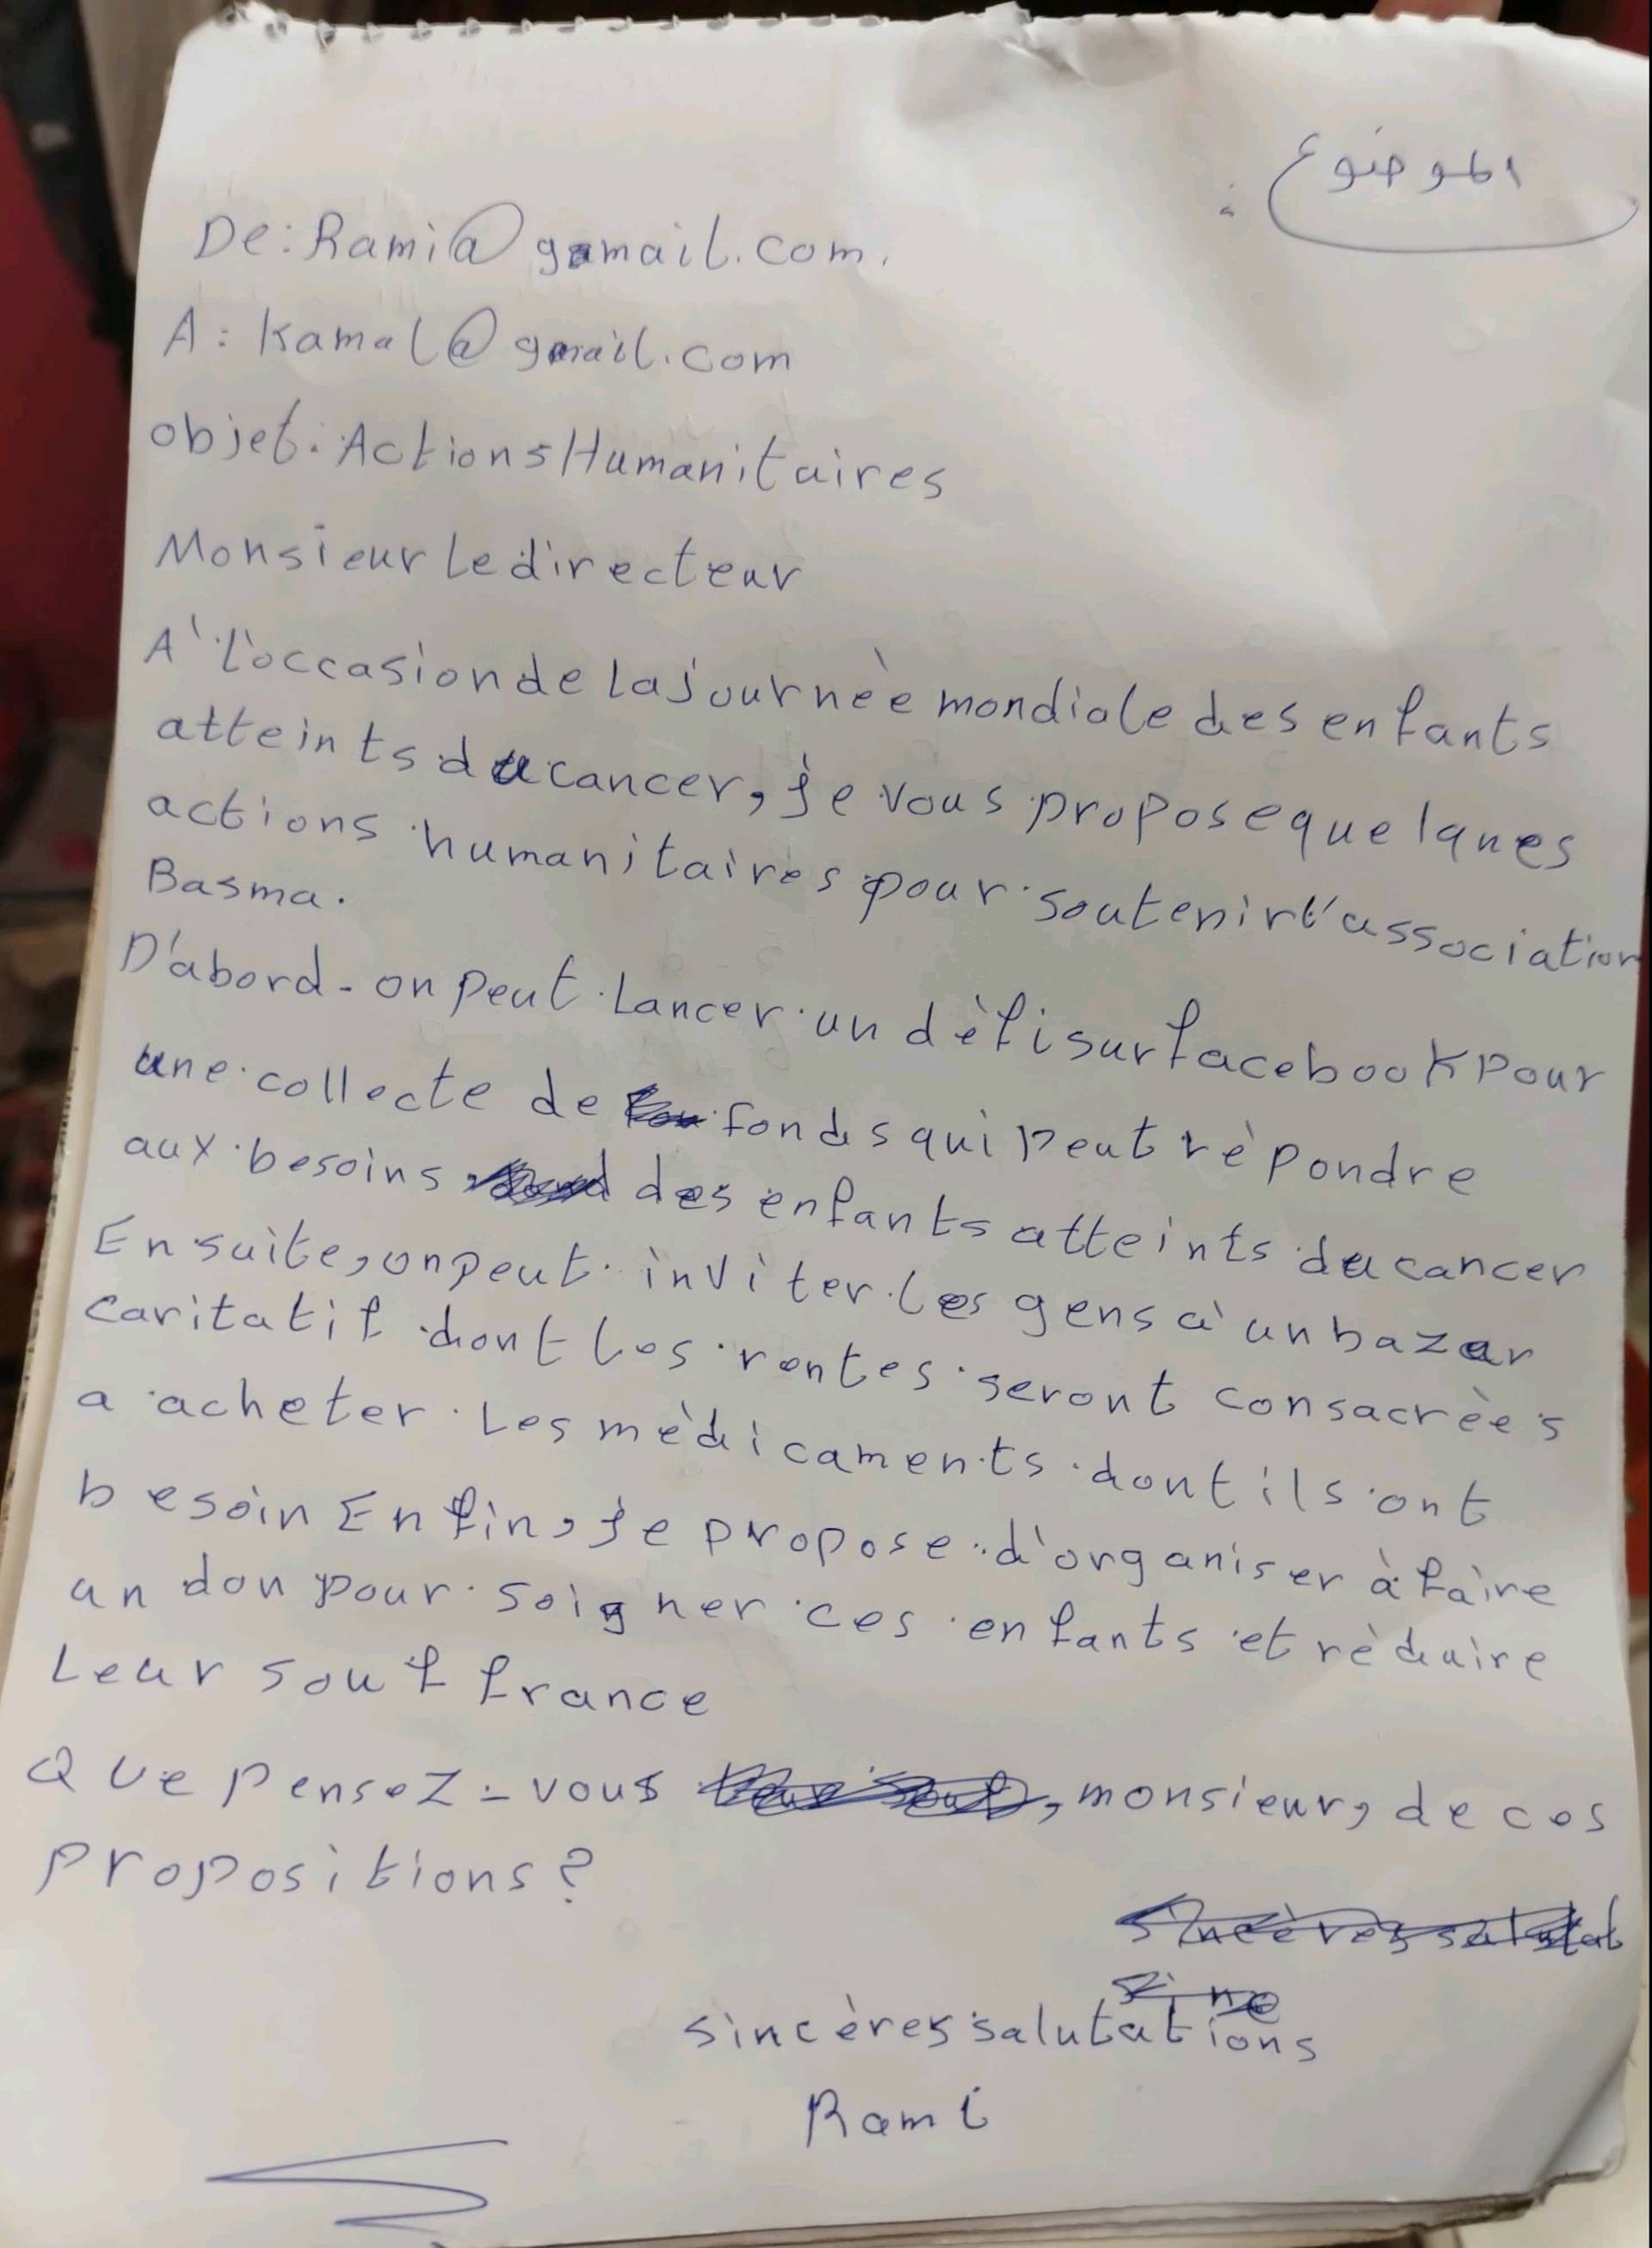 الموضوع :
De: Rami@gmail.com.
A: Kamal@gmail.com
objet: Actions Humanitaires
Monsieur le directeur
A' l'occasion de la journèe mondiale des enfants
atteints du cancer, je vous propose quelques
actions humanitaires pour soutenir l'association
Basma.
D'abord - on peut lancer un dèfi sur facebook pour
une collecte de fonds qui peut rèpondre
aux besoins des enfants atteints du cancer
Ensuite, on peut inviter les gens à un bazar
caritatif dont les rentes seront consacrèes
a acheter les mèdicaments dont ils ont
besoin Enfin, je propose d'organiser à faire
un don pour soigner ces enfants et rèduire
Leur souffrance
Que pensez-vous , monsieur, de ces
propositions?
sincères salutations
Rami